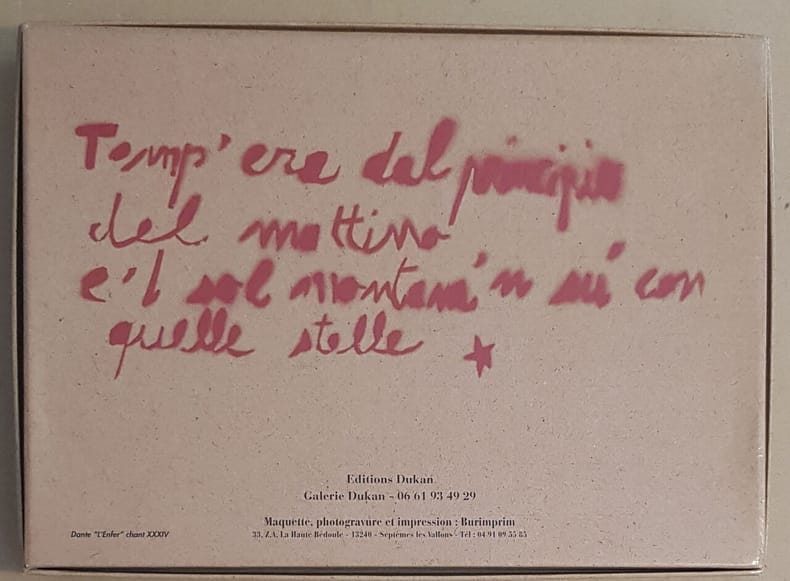 Temp' era dal principio
del mattino
e 'l sol montava 'n sú con
quelle stelle
Editions Dukan
Galerie Dukan - 06 61 93 49 29
Maquette, photogravure et impression : Burimprim
33, Z.A. La Haute Bédoule - 13240 - Septèmes les Vallons - Tél : 04 91 09 55 85
Dante "L'Enfer" chant XXXIV